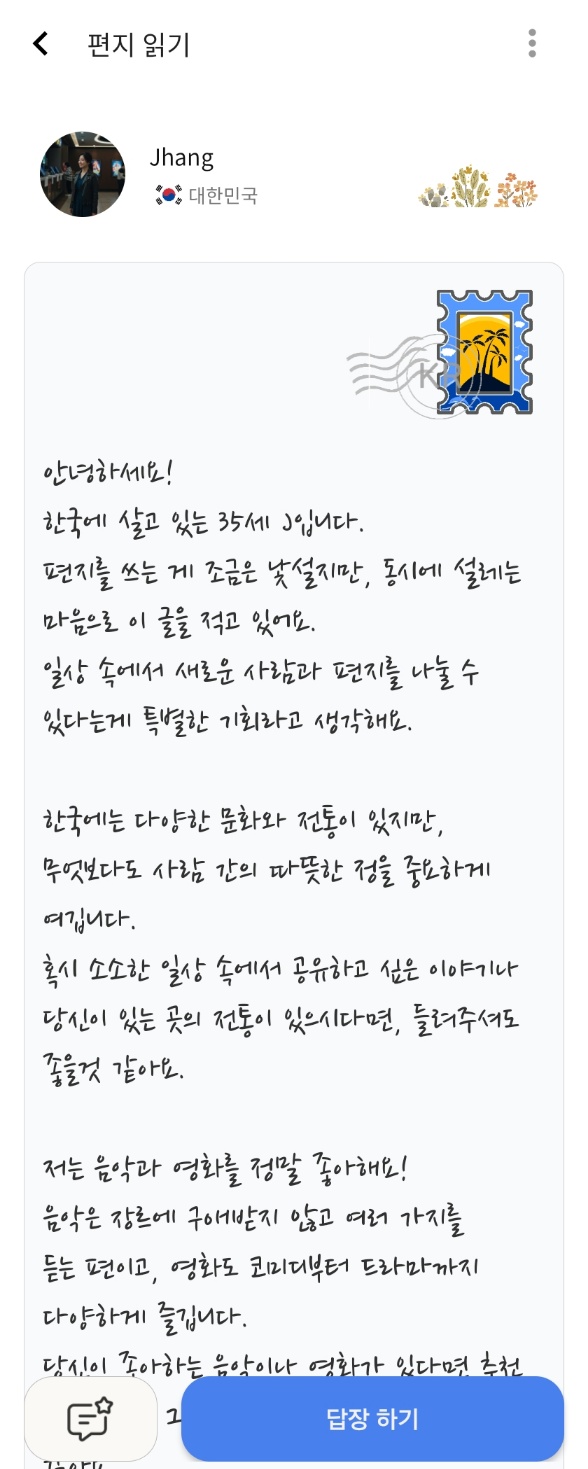 편지 읽기
Jhang
대한민국
안녕하세요!
한국에 살고 있는 35세 J입니다.
편지를 쓰는 게 조금은 낯설지만, 동시에 설레는
마음으로 이 글을 적고 있어요.
일상 속에서 새로운 사람과 편지를 나눌 수
있다는게 특별한 기회라고 생각해요.
한국에는 다양한 문화와 전통이 있지만,
무엇보다도 사람 간의 따뜻한 정을 중요하게
여깁니다.
혹시 소소한 일상 속에서 공유하고 싶은 이야기나
당신이 있는 곳의 전통이 있으시다면, 들려주셔도
좋을것 같아요.
저는 음악과 영화를 정말 좋아해요!
음악은 장르에 구애받지 않고 여러 가지를
듣는 편이고, 영화도 코미디부터 드라마까지
다양하게 즐깁니다.
당신이 좋아하는 음악이나 영화가 있다면 추천
답장 하기